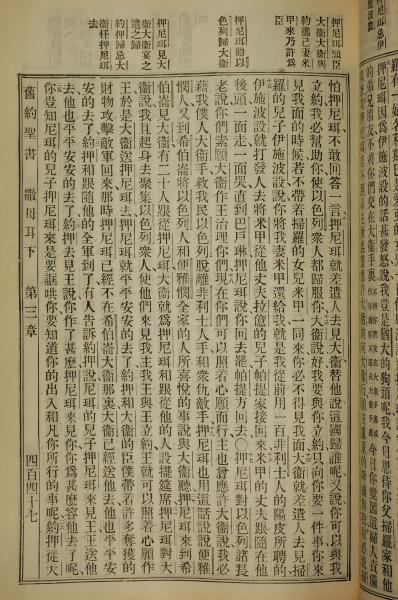 押尼珥因爲伊施波設的話甚發怒說我豈是猶大的狗頭呢我今日恩待你父掃羅家和他
押尼珥題臣
大衛大衛與
約遣己妻米
甲來乃許爲
臣
押尼珥勸以
色列歸大衛
押尼珥見大
衛大衛宴之
遣之歸
約押歸怨大
衛任押尼珥
去
怕押尼珥不敢回答一言押尼珥就差遣人去見大衛替他說這國歸誰呢又說你可以與我
立約我必幫助你使以色列衆人都歸服你大衛說好我要與你立約只向你要一件事你來
見我面的時候若不帶着掃羅的女兒米甲一同來你必不得見我面大衛就差遣人去見掃
羅的兒子伊施波設說你將我妻米甲還給我就是我從前用一百非利士人的陽皮所聘的
伊施波設就打發人去將米甲從他丈夫拉億的兒子帕提家接回來米甲的丈夫跟隨在他
後頭一面走一面哭直到巴戶琳押尼珥說你回去罷帕提方回去○押尼珥對以色列諸長
老說你們素願大衛作王治理你們現在你們可以照着心願而行主也曾應許大衛說我必
藉我僕人大衛手救我民以色列脫離非利士人手和衆仇敵手押尼珥也用這話說與便雅
憫人又到希伯崙將以色列人和便雅憫全家的人所喜悅的事說與大衛聽押尼珥來到希
伯崙見大衛有二十人跟從押尼珥大衛就爲押尼珥和跟從他的人設擺筵席押尼珥對大
衛說我且起身去聚集以色列衆人使他們來見我主我王與王立約王就可以照着心願作
王於是大衛送押尼珥去押尼珥就平平安安的去了約押和大衛的臣僕帶着許多奪獲的
財物攻擊敵軍回來那時押尼珥已經不在希伯崙大衛那裏大衛已經送他去他也平平安
安的去了約押和跟隨他的全軍到了有人告訴約押說尼珥的兒子押尼珥來見王王送他
去他也平平安安的去了約押去見王說你作了甚麼押尼珥來見你你爲甚麼容他去了呢
你豈知尼珥的兒子押尼珥來是要誆哄你要知道你的出入和凡你所行的事呢約押從大
舊約聖書 撒母耳下 第三章 四百四十七